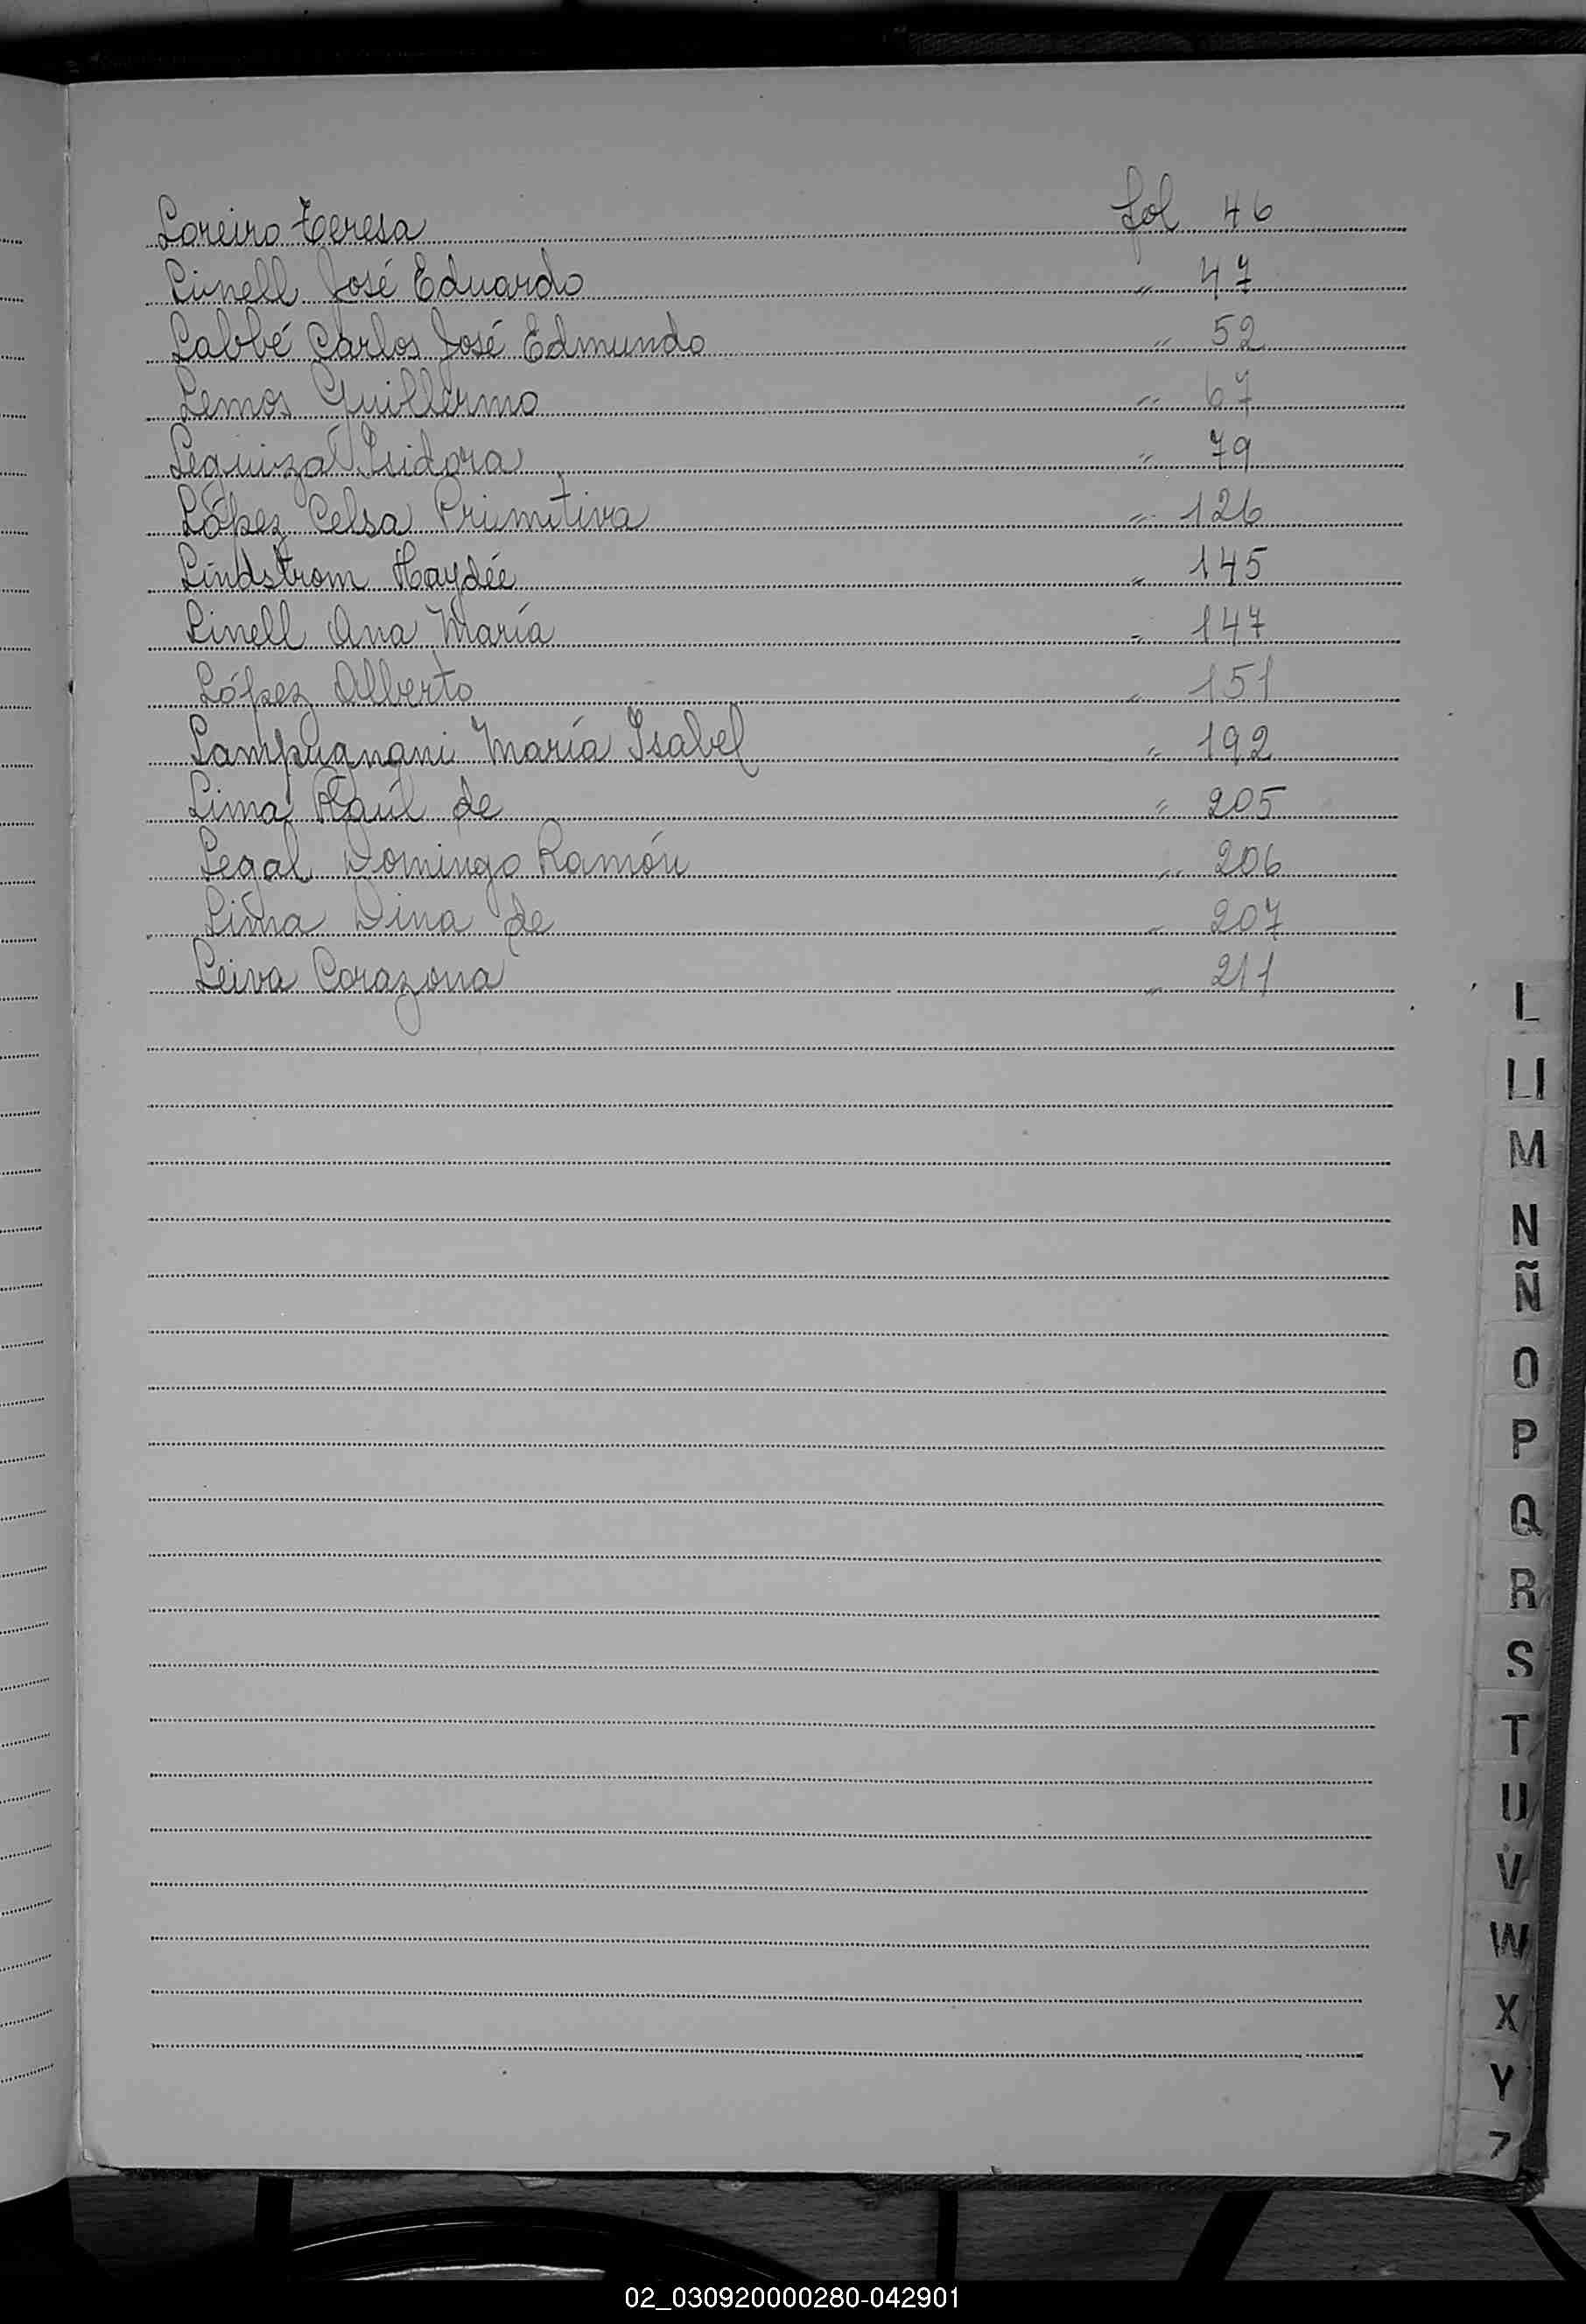 Loreiro Teresa fol 46
Linell José Eduardo " 47
Labbé Carlos José Edmundo " 52
Lemos Guillermo " 67
Leguiza Isidora " 79
López Celsa Primitiva " 126
Lindstrom Haydée " 145
Linell Ana María " 147
López Alberto " 151
Lampugnani María Isabel " 192
Lima Raúl de " 205
Legal Domingo Ramón " 206
Lima Dina de " 207
Leiva Corazona " 211
L
Ll
M
N
Ñ
O
P
Q
R
S
T
U
V
W
X
Y
Z
02_030920000280-042901